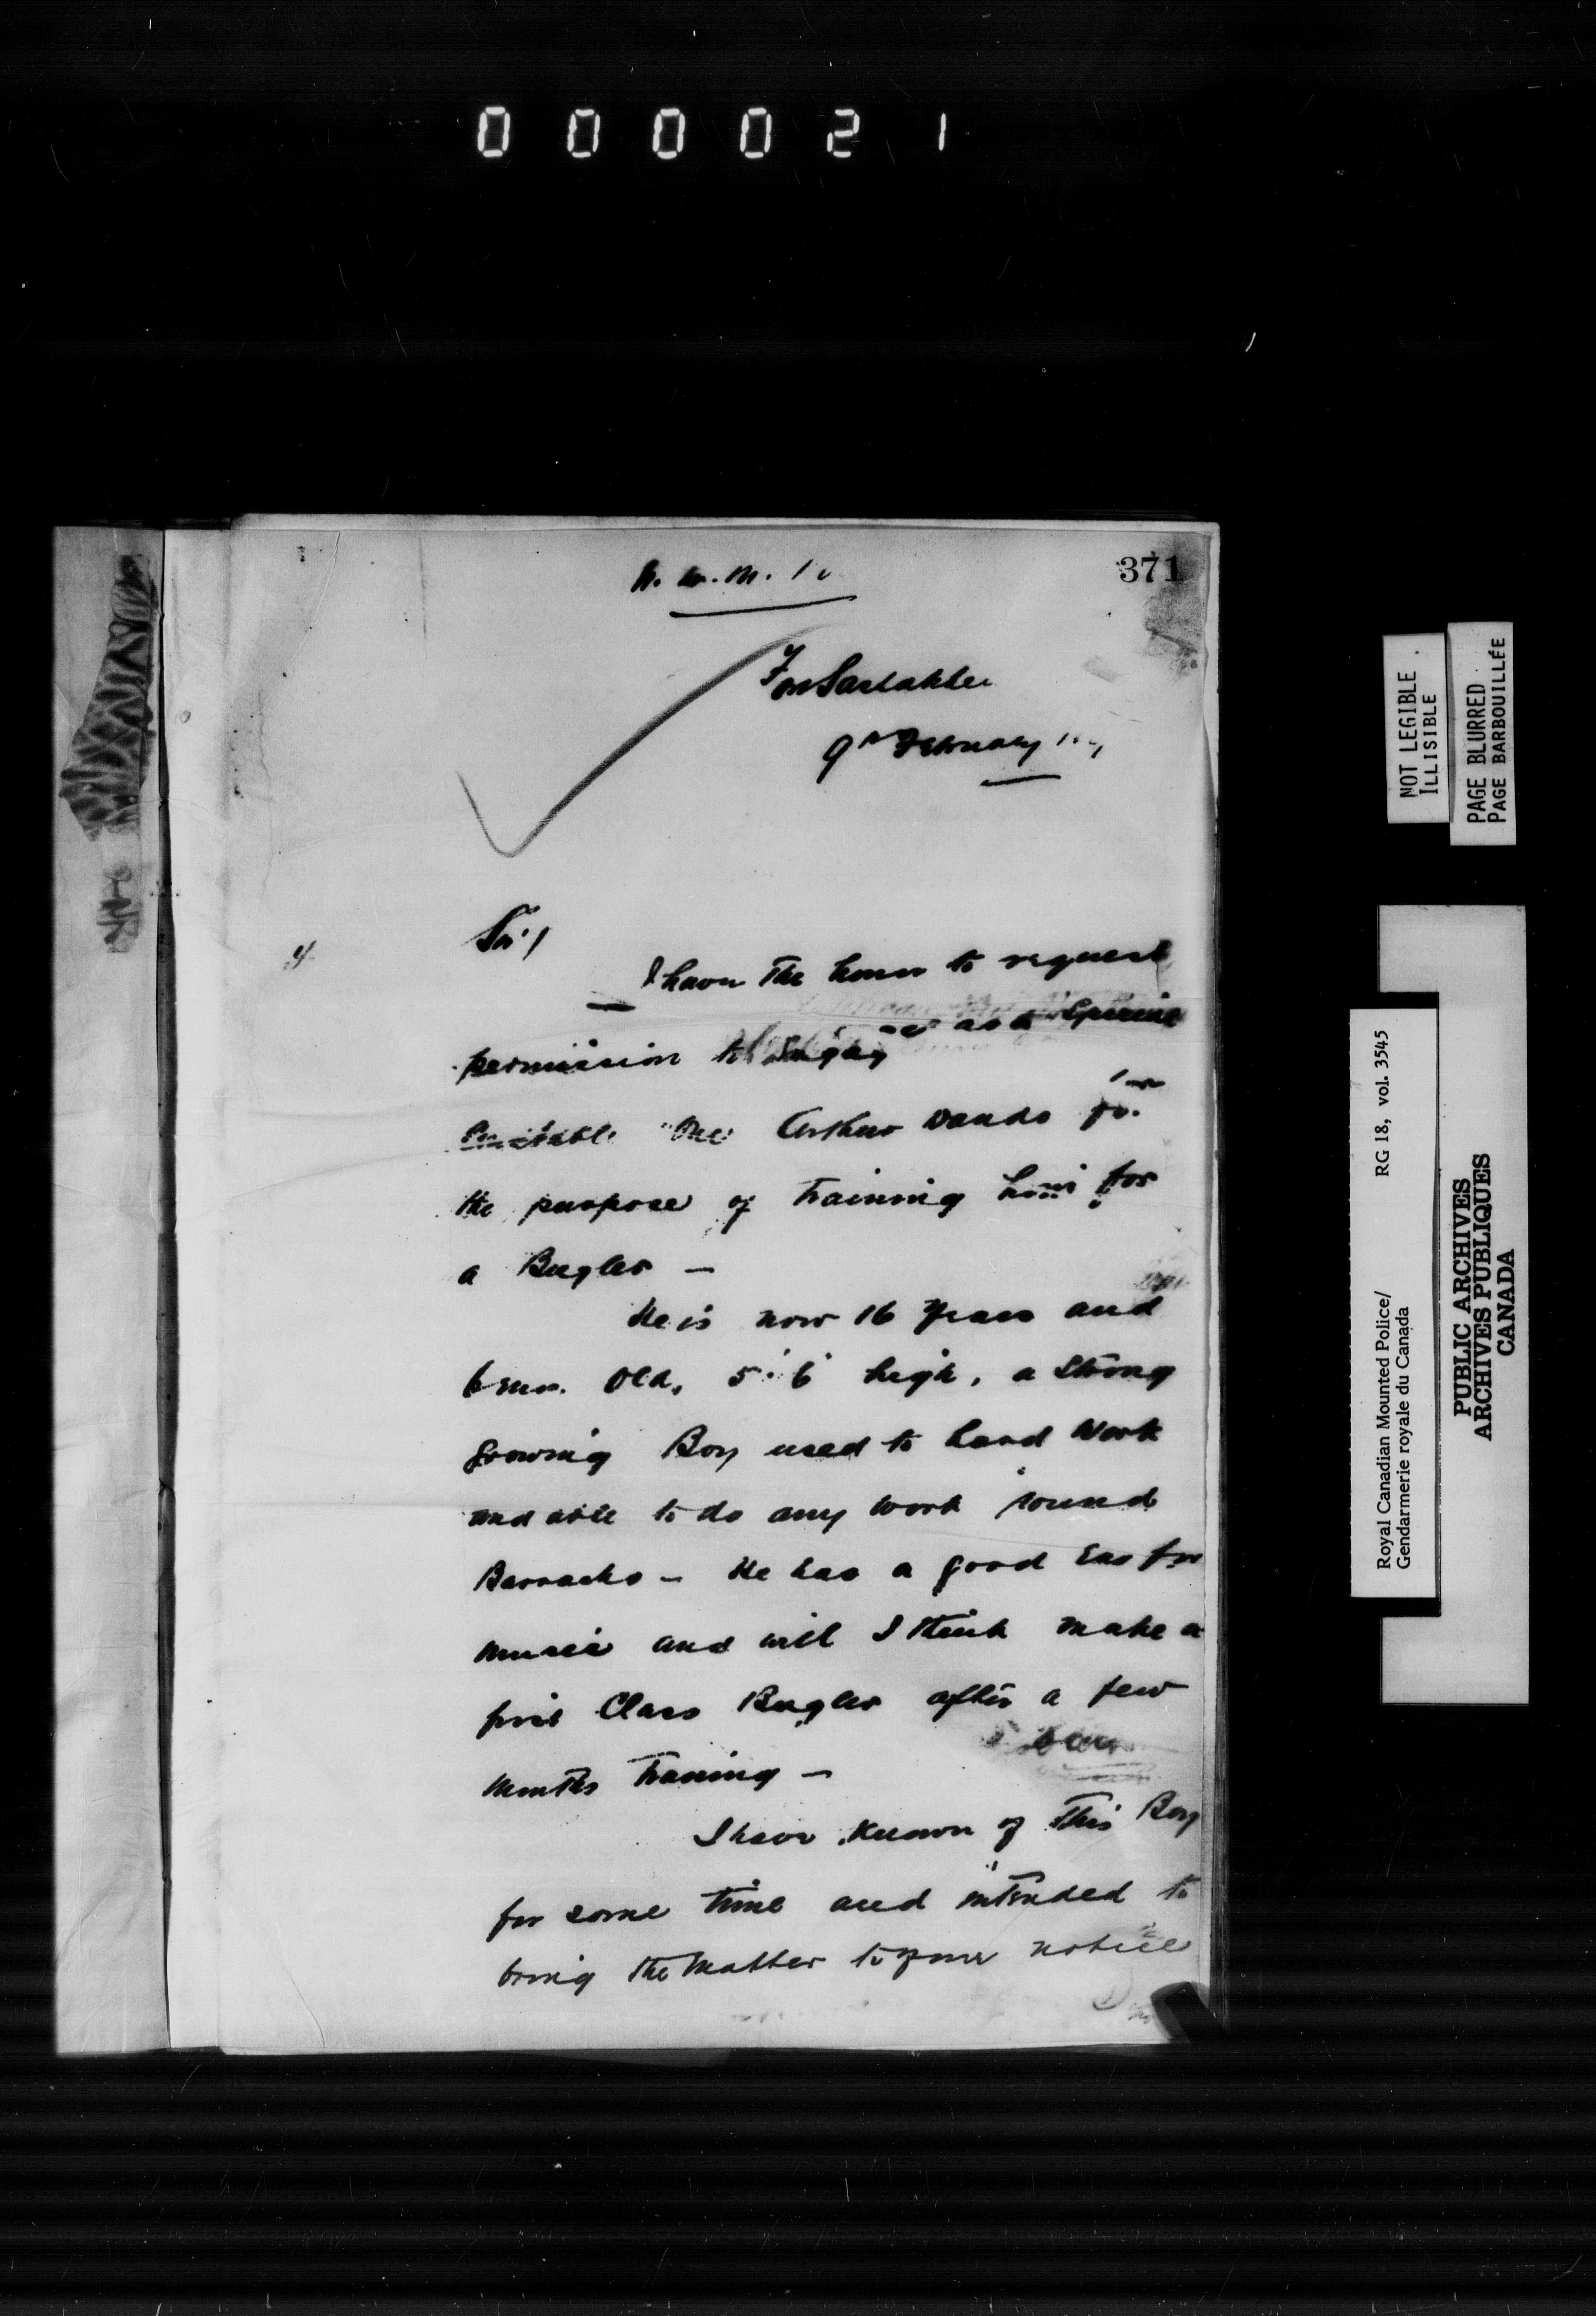 000021
371
N. W. M. P.
Fort Saskatchewan
9th February
Sir,
I have the honor to request
permission to Engage as a Special
Constable One Arthur Dando for
the purpose of training him for
a Bugler —
He is now 16 Years and
6 mos. Old, 5' 6" high, a Strong
growing Boy used to hard Work
and able to do any work round
Barracks — He has a good Ear for
music and will I think make a
first Class Bugler after a few
Months Training —
I have known of this Boy
for some time and intended to
bring the Matter to your notice
NOT LEGIBLE
ILLISIBLE
PAGE BLURRED
PAGE BARBOUILLÉE
Royal Canadian Mounted Police/
Gendarmerie royale du Canada
RG 18, vol. 3545
PUBLIC ARCHIVES
ARCHIVES PUBLIQUES
CANADA